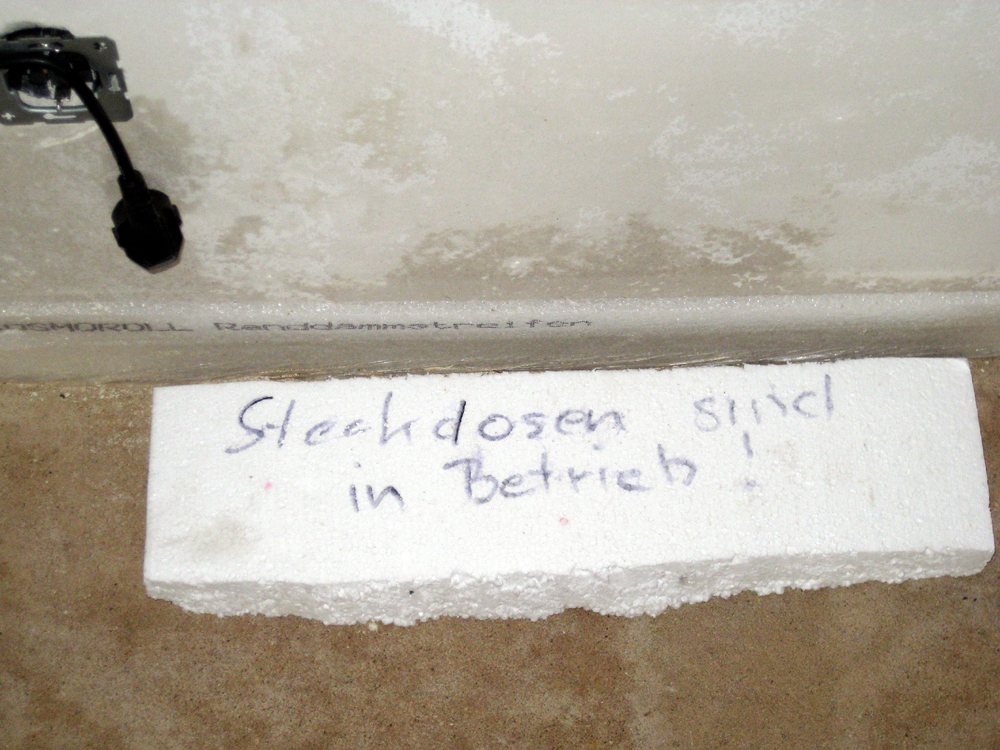 Randdämmstreifen
Steckdosen sind
in Betrieb !